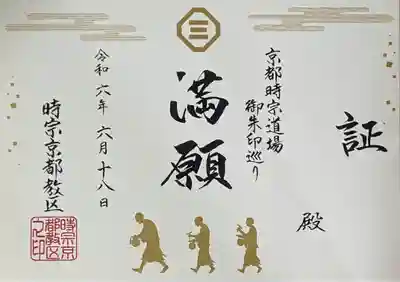 証
殿
京都時宗道場
御朱印巡り
満願
令和六年 六月 十八日
時宗京都教区
時宗京
都教区
之印